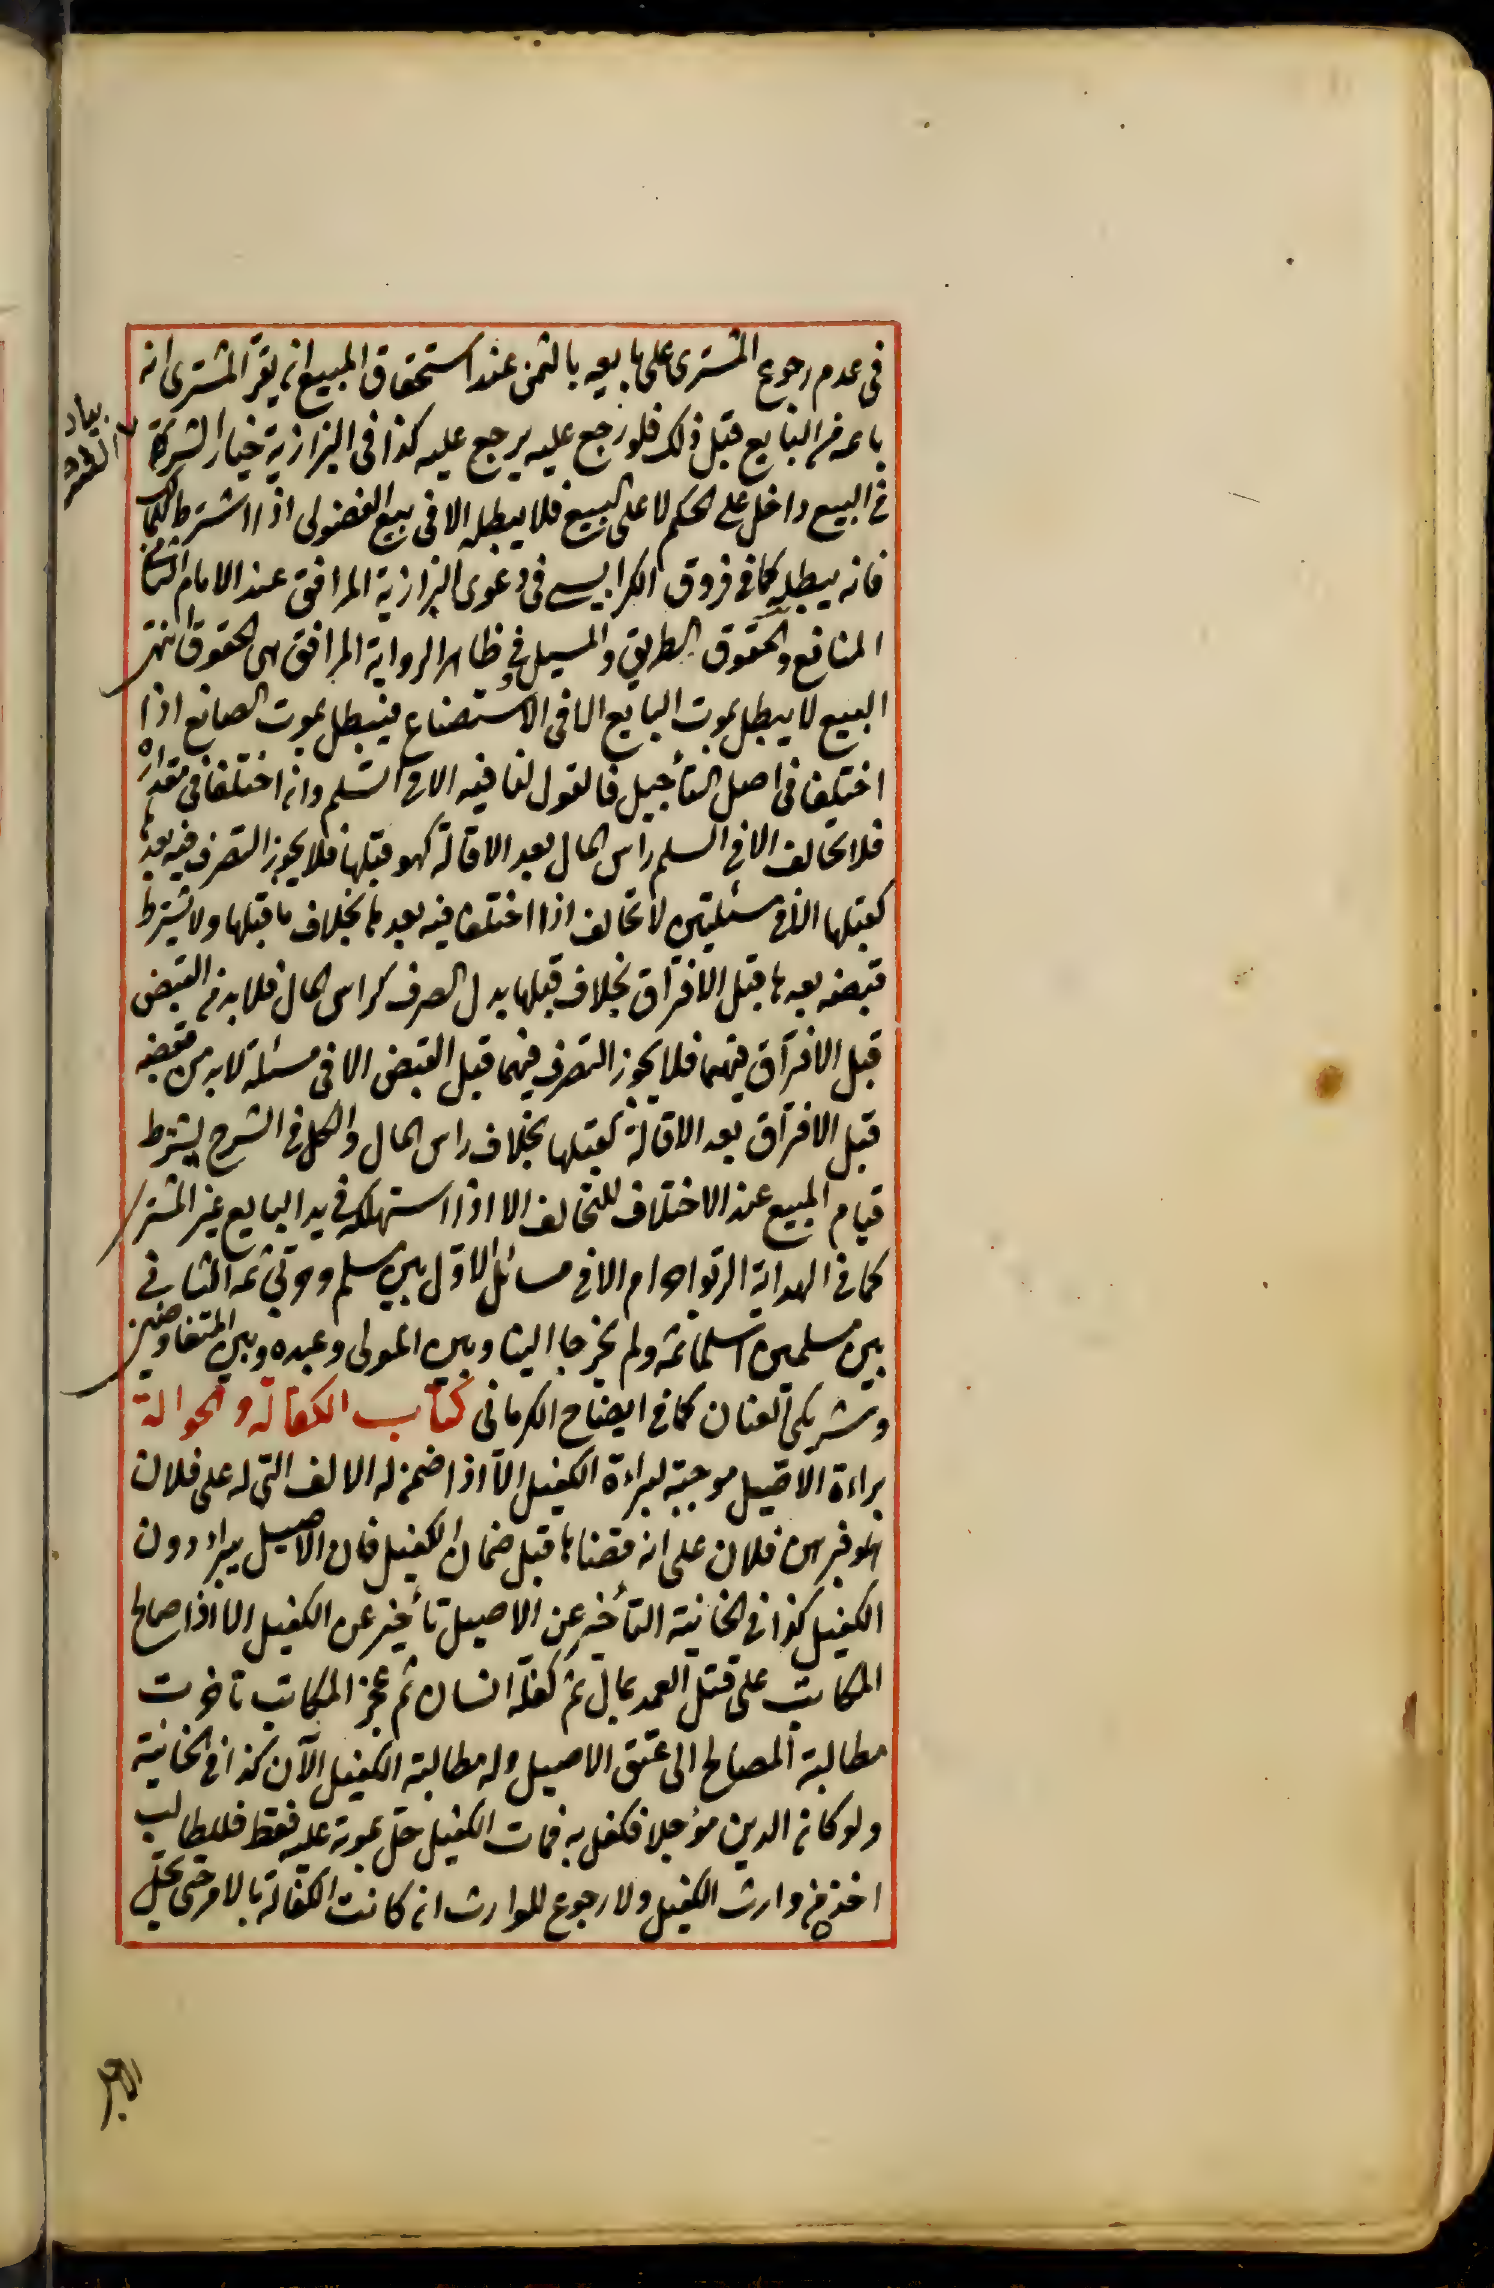 فى عدم رجوع المشترى على بايعه بالثمن عند استحقاق المبيع ان يقر المشترى انه
باعه من البايع قبل ذلك فلو رجع عليه يرجع عليه كذا فى البزازية خيار الشرط
فى البيع داخل على الحكم لا على البيع فلا يبطله الا فى بيع الفضولى اذا اشترط للمالك
فانه يبطله كما فى فروق الكرابيسى فى دعوى البزازية المرافق عند الامام الثانى
المنافع والحقوق الطريق والمسيل وفى ظاهر الرواية المرافق هى الحقوق انتهى
البيع لا يبطل بموت البايع الا فى الاستصناع فيبطل بموت الصانع اذا
اختلفا فى اصل التأجيل فالقول لنافيه الا فى السلم وان اختلفا فى مقداره
فلا تحالف الا فى السلم راس المال بعد الاقالة كهو قبلها فلا يجوز التصرف فيه بعدها
كقبلها الا فى مسئلتين لا تحالف اذا اختلفا فيه بعدها بخلاف ما قبلها ولا يشترط
قبضه بعدها قبل الافتراق بخلاف قبلها بدل الصرف كراس المال فلا بد من القبض
قبل الافتراق فيهما فلا يجوز التصرف فيهما قبل القبض الا فى مسئلة لا بد من قبضه
قبل الافتراق بعد الاقالة كقبلها بخلاف راس المال والكل فى الشرح يشترط
قيام المبيع عند الاختلاف للتحالف الا اذا استهلكه فى يد البايع غير المشترى
كما فى الهداية الربوا حرام الا فى مسائل الاول بين مسلم وحربى ثمه الثانى
بين مسلمين اسلما ثمه ولم يخرجا الينا وبين المولى وعبده وبين المتفاوضين
وشريكى العنان كما فى ايضاح الكرمانى كتاب الكفالة والحوالة
براءة الاصيل موجبة لبراءة الكفيل الا اذا ضمن له الالف التى له على فلان
فبرهن فلان على انه قضاها قبل ضمان الكفيل فان الاصيل يبرا دون
الكفيل كذا فى الخانية التأخير عن الاصيل تأخير عن الكفيل الا اذا صالح
المكاتب على قتل العمد بمال ثم كفله انسان ثم عجز المكاتب تاخرت
مطالبة المصالح الى عتق الاصيل وله مطالبة الكفيل الآن كذا فى الخانية
ولو كان الدين مؤجلا فكفل به فمات الكفيل حل بموته عليه فقط فللطالب
اخذه من وارث الكفيل ولا رجوع للوارث ان كانت الكفالة بالامر حتى يحل
الاجل